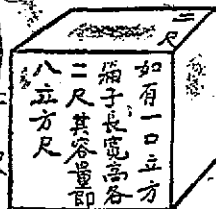 二尺
如有一口立方
箱子長寬高各
二尺其容量即
八立方尺